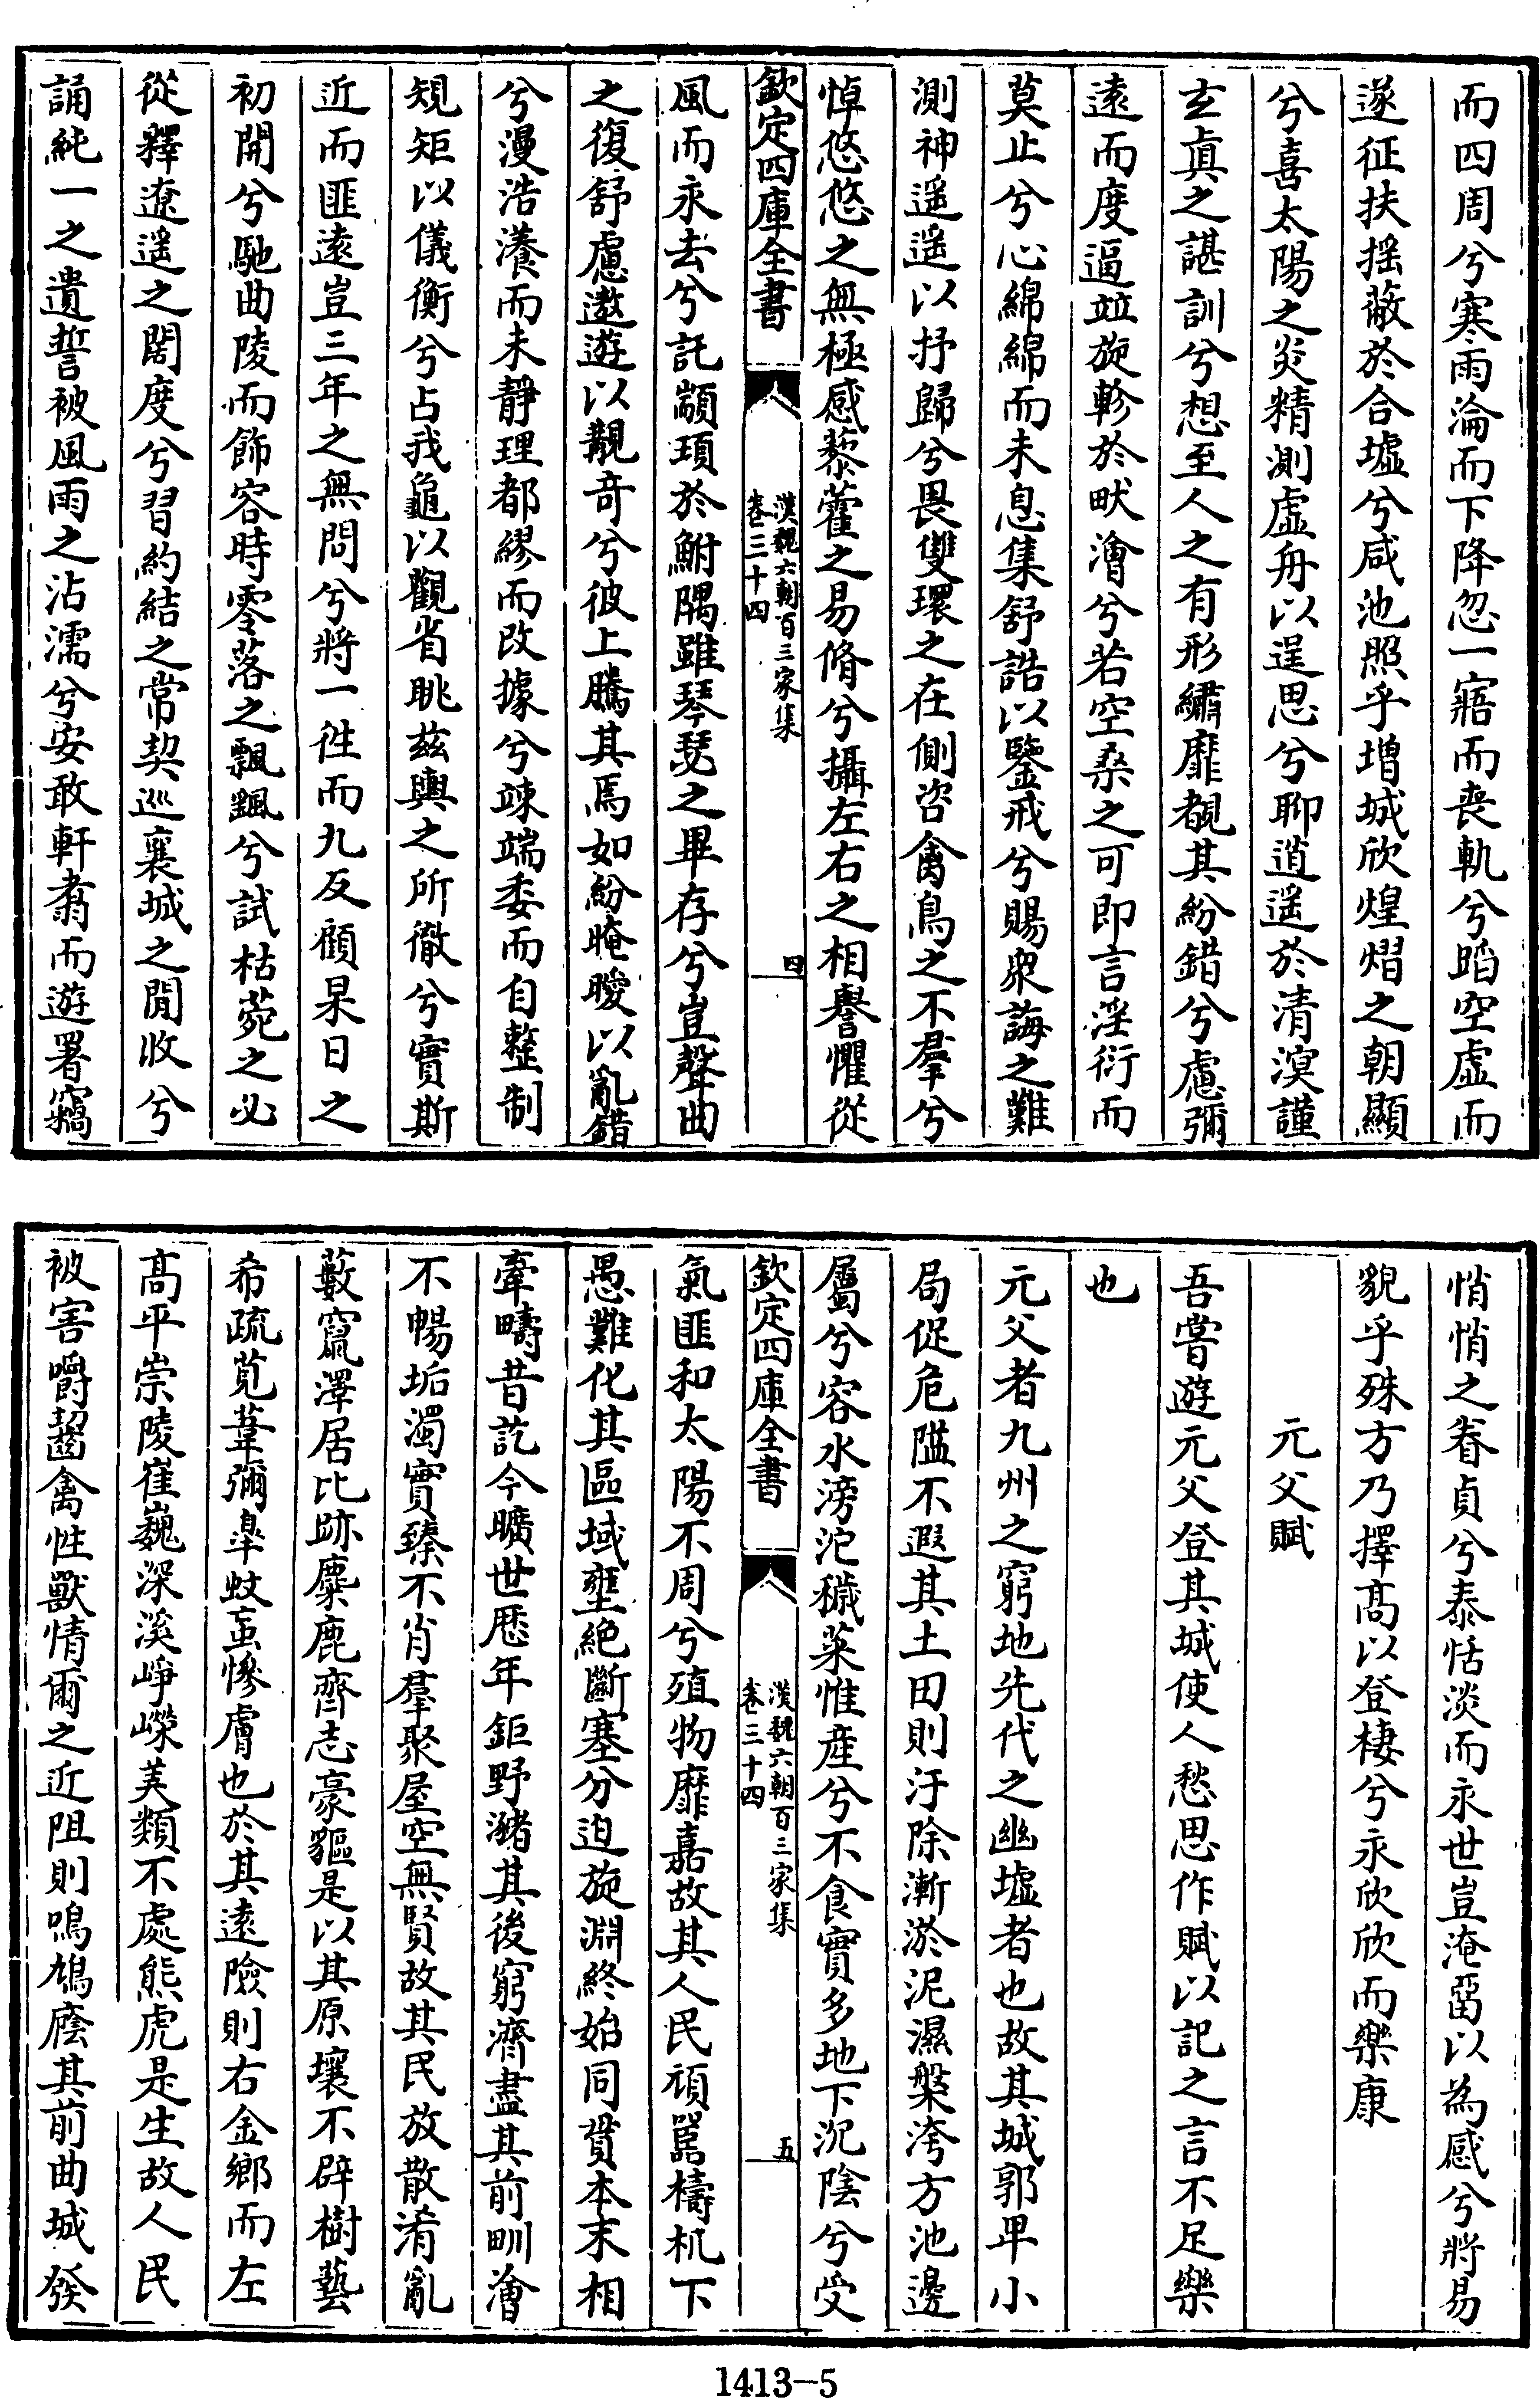 而四周兮寒雨淪而下降忽一寤而喪軌兮蹈空虛而
遂征扶揺蔽於合墟兮咸池照乎増城欣煌熠之朝顯
兮喜太陽之炎精測虛舟以逞思兮聊逍遥於清溟謹
玄真之諶訓兮想至人之有形繡靡覩其紛錯兮慮彌
遠而度逼竝旋軫於畎澮兮若空桑之可即言淫衍而
莫止兮心綿綿而未息集舒誥以鑒戒兮賜衆誨之難
測神遥遥以抒歸兮畏雙環之在側咨禽鳥之不羣兮
悼悠悠之無極感藜藿之易脩兮攝左右之相譽懼從
欽定四庫全書
漢魏六朝百三家集
卷三十四
四
風而永去兮託顓頊於鮒隅雖琴瑟之畢存兮豈聲曲
之復舒慮遨遊以觀竒兮彼上騰其焉如紛晻曖以亂錯
兮漫浩瀁而未静理都繆而改據兮竦端委而自整制
規矩以儀衡兮占我龜以觀省眺兹輿之所徹兮實斯
近而匪遠豈三年之無問兮將一徃而九反顧杲日之
初開兮馳曲陵而飾容時零落之飄颻兮試枯菀之必
從釋遼遥之闊度兮習約結之常契巡襄城之閒收兮
誦純一之遺誓被風雨之沾濡兮安敢軒翥而遊署竊
悄悄之眷貞兮泰恬淡而永世豈淹畱以為感兮將易
貌乎殊方乃擇髙以登棲兮永欣欣而樂康
元父賦
吾嘗遊元父登其城使人愁思作賦以記之言不足樂
也
元父者九州之窮地先代之幽墟者也故其城郭卑小
局促危隘不遐其土田則汙除漸淤泥濕槃洿方池邊
屬兮容水滂沱穢菜惟産兮不食實多地下沉陰兮受
欽定四庫全書
漢魏六朝百三家集
卷三十四
五
氣匪和太陽不周兮殖物靡嘉故其人民頑嚚檮杌下
愚難化其區域壅絶斷塞分迫旋淵終始同貫本末相
牽疇昔訖今曠世歴年鉅野瀦其後窮濟盡其前畎澮
不暢垢濁實臻不肖羣聚屋空無賢故其民放散淆亂
藪竄澤居比跡麋鹿齊志豪貙是以其原壤不辟樹藝
希疏莧葦彌臯蚊䖟慘膚也於其遠險則右金鄉而左
髙平崇陵崔巍深溪崢嶸美類不處熊虎是生故人民
被害嚼齧禽性獸情爾之近阻則鳴鳩䕃其前曲城發
1413-5